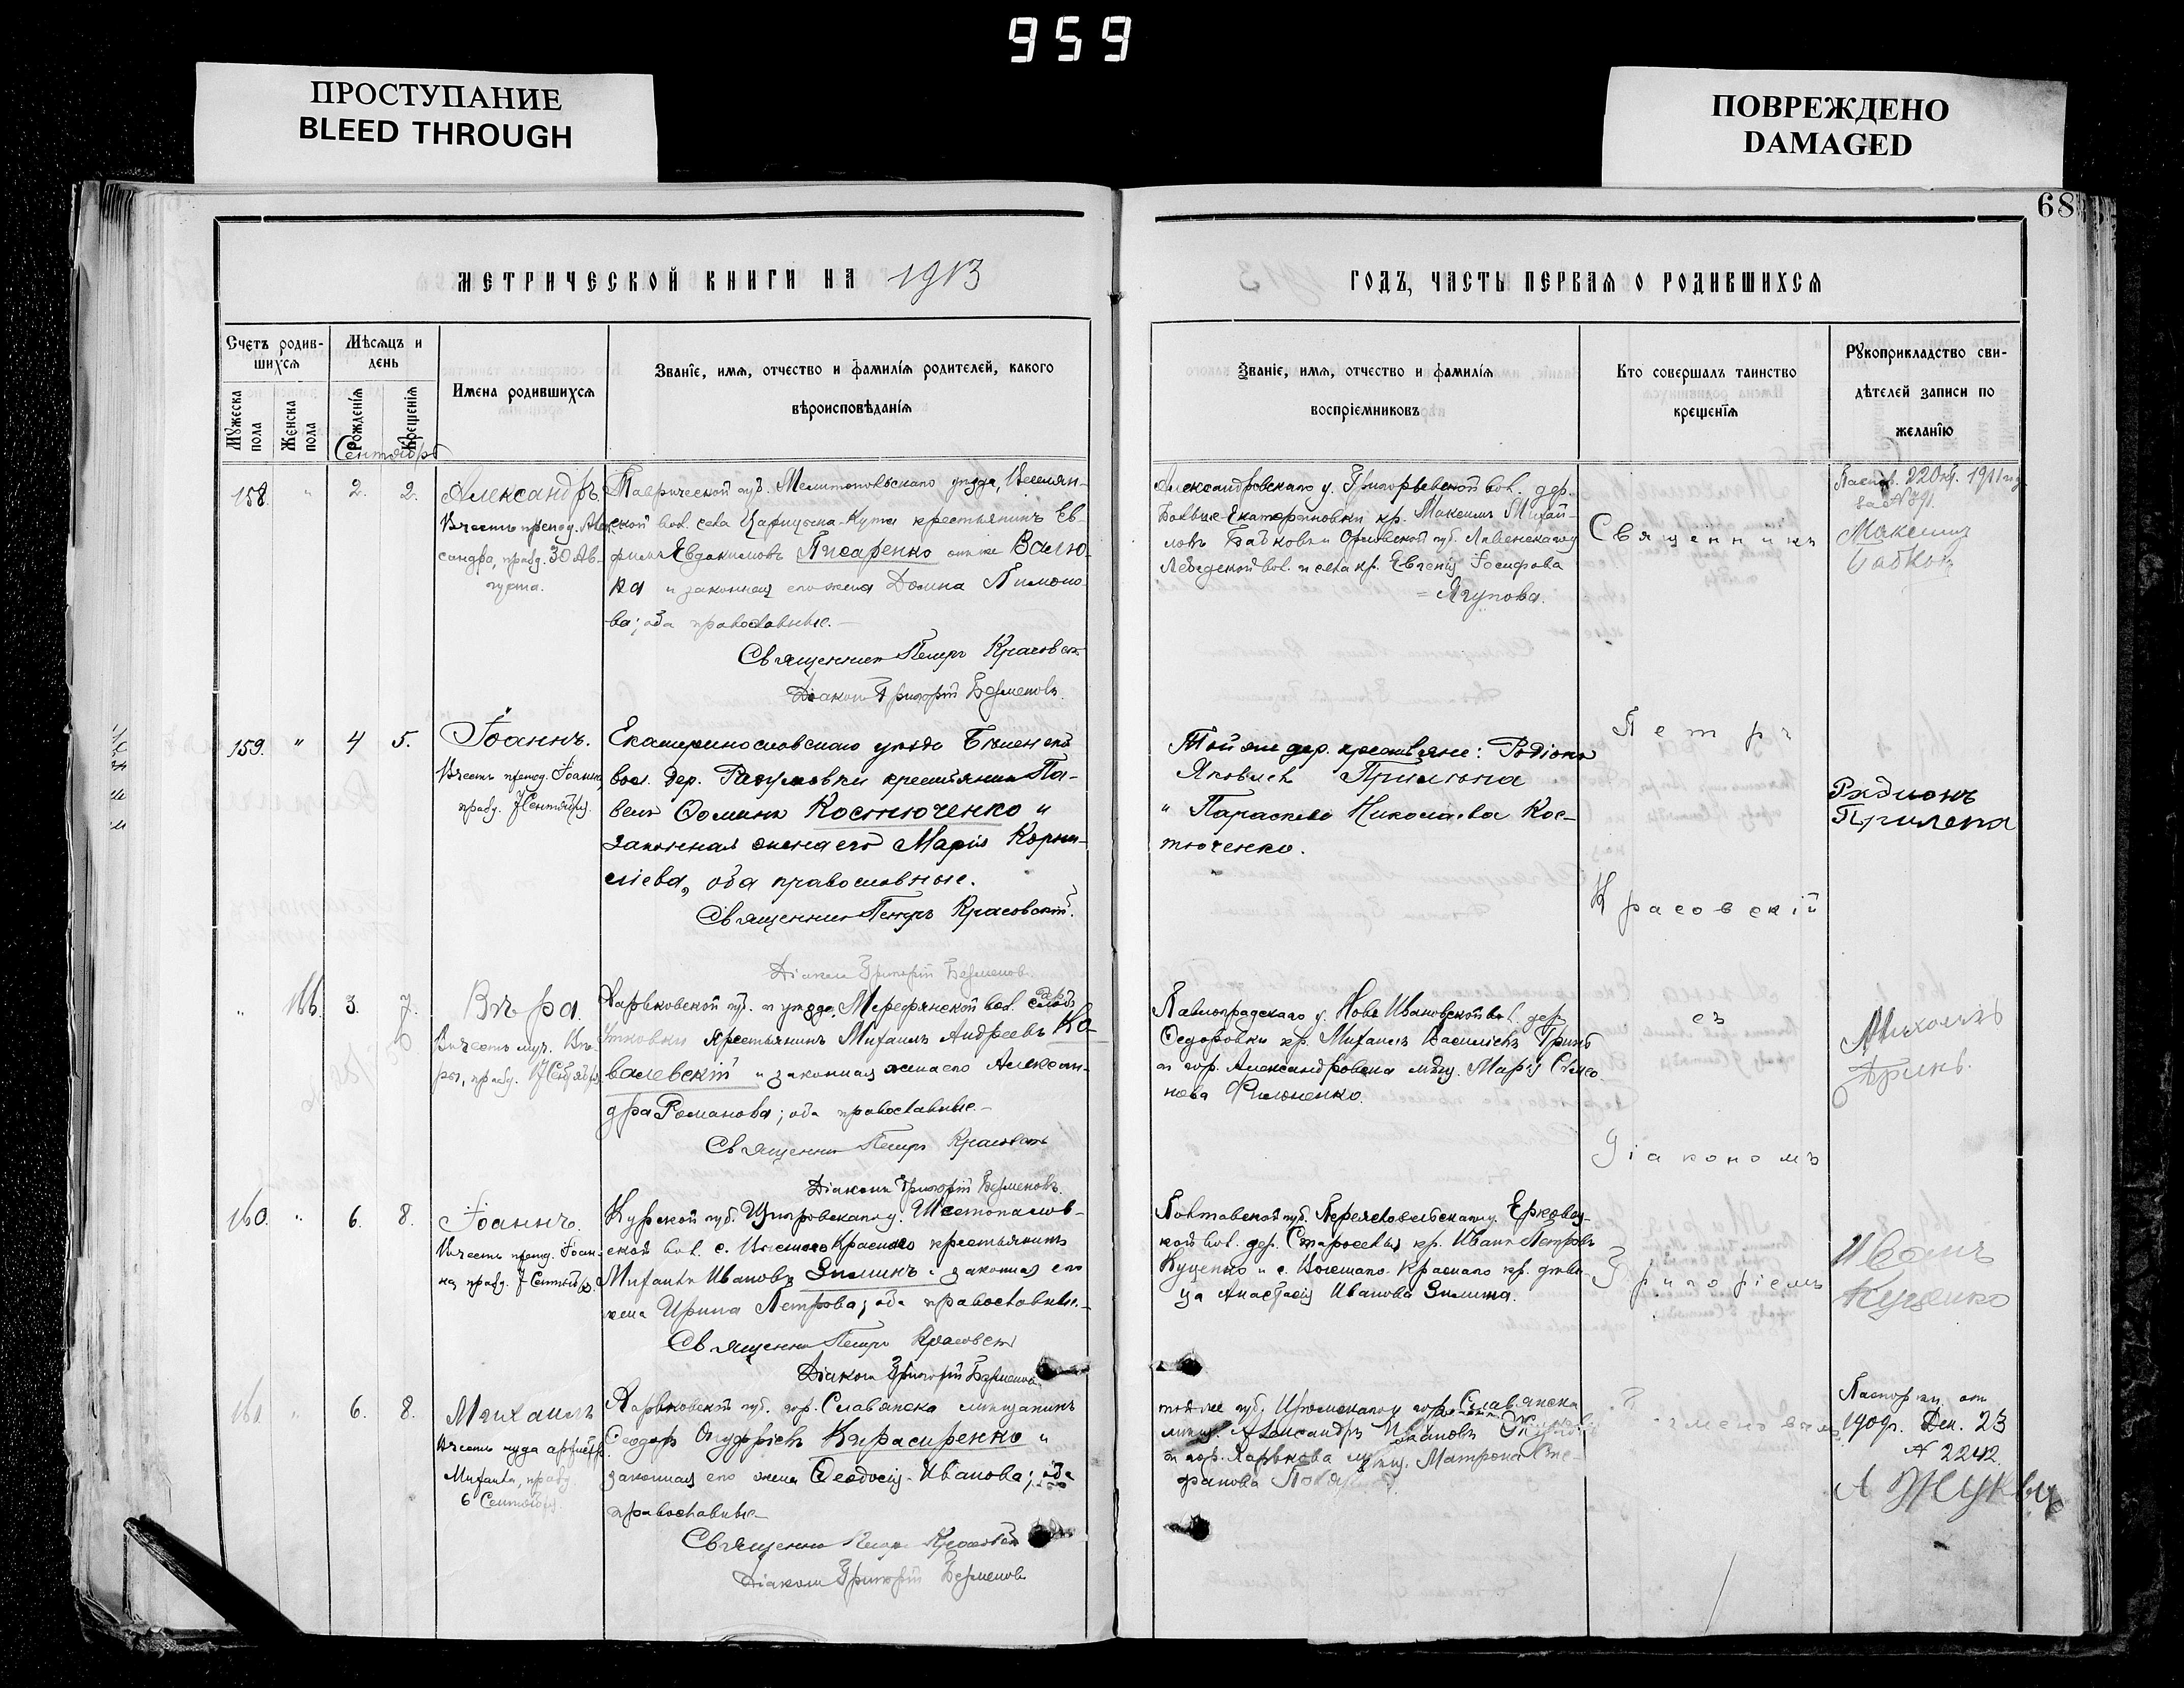 959
ПРОСТУПАНИЕ
BLEED THROUGH
ПОВРЕЖДЕНО
DAMAGED
68
МЕТРИЧЕСКОЙ КНИГИ НА 1913
ГОДЪ, ЧАСТЬ ПЕРВАЯ О РОДИВШИХСЯ
Счетъ родив-
шихся
Мужеска пола
Женска пола
Мѣсяцъ и
день
Рожденія
Крещенія
Имена родившихся
Званіе, имя, отчество и фамилія родителей, какого
вѣроисповѣданія
Званіе, имя, отчество и фамилія
воспріемниковъ
Кто совершалъ таинство
крещенія
Рукоприкладство сви-
дѣтелей записи по
желанію
Сентябрь
158. " 2. 2. Александръ.
Въ честь препод. Алек-
сандра, празд. 30 Ав-
густа.
Таврической губ. Мелитопольскаго уѣзда, Веселян-
ской вол. села Царицына-Кута крестьянинъ Ев-
Евдокимовъ Писаренко онъ же Валю-
ка и законная его жена Домна Пимоно-
ва; оба православные.
Священникъ Петръ Красовск
Діаконъ Григорій
Александровскаго у. Григорьевской вол. дер.
Екатериновки кр. Максимъ Михай-
ловъ Бабковъ и Орловской губ. Ливенскаго у.
вол. и села кр. Евгенія Іосифова
Ягупова.
Паспор. 22 Окт. 1911 г.
за №
Максимъ
Бабковъ
159. " 4 5. Іоаннъ.
Въ честь препод. Іоанна,
празд. 7 Сентября.
Екатеринославскаго уѣзда
вол. дер. Разумовки крестьянинъ Па-
велъ Ѳоминъ Костюченко и
законная жена его Марія Корни-
ліева, оба православные.
Священникъ Петръ Красовскій.
Діаконъ Григорій
Той же дер. крестьяне: Родіонъ
Яковлевъ
и Параскева Николаева Кос-
тюченко.
Родионъ
Прилепа
" 166. 3. 7. Вѣра.
Въ честь муч. Вѣ-
ры, празд. 17 Сентября
Харьковской губ. и уѣзда, Мерефянской вол. слоб.
Утковки крестьянинъ Михаилъ Андреевъ Ко-
валевскій и законная жена его Алексан-
дра Романова; оба православные.
Священникъ Петръ Красовскій
Діаконъ Григорій
Павлоградскаго у. Ново Ивановской вол. дер.
Ѳедоровки кр. Михаилъ Васильевъ Гринь
и гор. Александровска мѣщ. Марія
нова Филоненко.
Михаилъ
Гринь.
160. " 6. 8. Іоаннъ.
Въ честь препод. Іоан-
на празд. 7 Сентября.
Курской губ. Щигровскаго у.
ской вол. с. Краснаго крестьянинъ
Михаилъ Ивановъ Зиминъ и законная его
жена Ирина Петрова; оба православные.
Священникъ Петръ Красовскій
Діаконъ Григорій
Полтавской губ. Переяславльскаго у. Ерковец-
кой вол. дер. кр. Иванъ Петровъ
Куценко и с. Краснаго кр. дѣви-
ца Анастасія Иванова Зимина.
Иванъ
Куценко
161. " 6. 8. Михаилъ
Въ честь чуда архистр.
Михаила, празд.
6 Сентября.
Харьковской губ. гор. Славянска мѣщанинъ
Ѳеодоръ Онуфріевъ Кирасиренко и
законная его жена Ѳеодосія Иванова; оба
православные
Священникъ Петръ Красовскій
Діаконъ Григорій
той же губ. Изюмскаго у. гор. Славянска
мѣщ. Александръ Ивановъ
и гор. Харькова мѣщ. Матрона Сте-
фанова
Паспор. кн. отъ
1909 г. Дек. 23
№ 2242.
А
Священникъ
Петръ
Красовскій
съ
Діакономъ
Григоріемъ